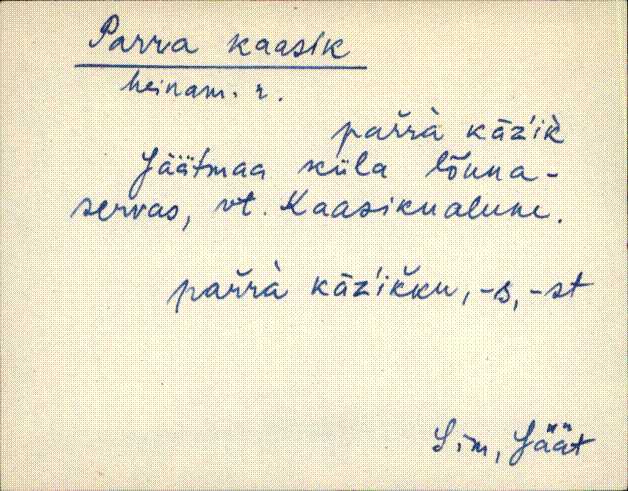 Parra kaasik
heinam. r.
pařrà kāz'ik̀
Jäätmaa küla lõuna-
servas, vt. Kaasikualune.
pařrà kāz'ikku, -s, -st
Sim, Jäät